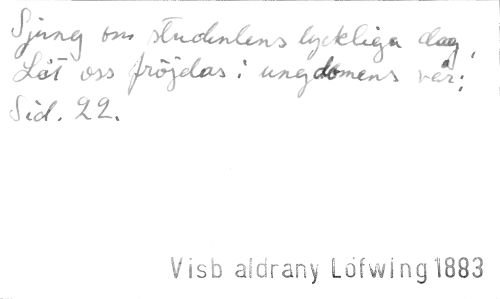 Sjung om studentens lyckliga dag,
Låt oss fröjdas i ungdomens vår;
Sid. 22.
Visb aldrany Löfwing 1883